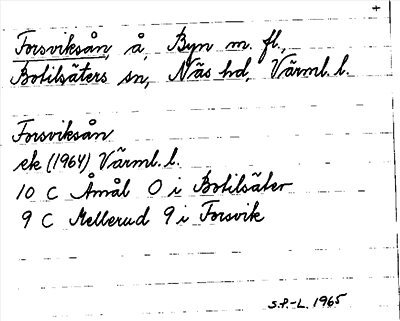 +
Forsviksån, å, Byn m. fl.,
Botilsäters sn, Näs hd, Värml. l.
Forsviksån
ek (1964) Värml. l.
10 C Åmål O i Botilsäter
9 C Mellerud 9 i Forsvik
S.P.-L. 1965